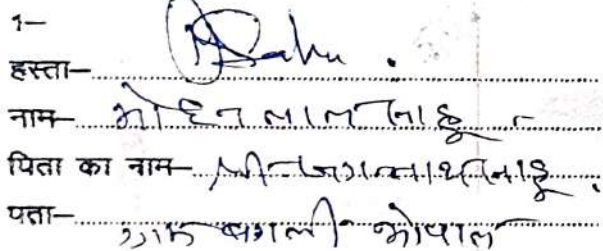 1–
हस्ता– MSahu.
नाम– मोहन लाल साहू
पिता का नाम– श्री जगन्नाथ साहू
पता– ग्राम बगली भोपाल